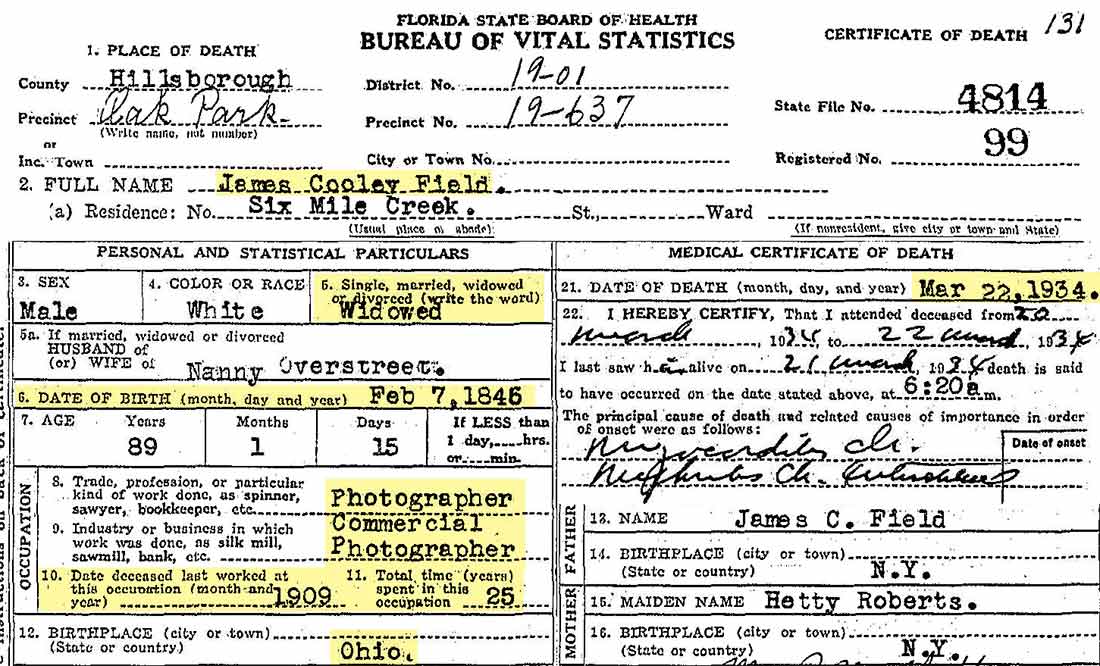 FLORIDA STATE BOARD OF HEALTH
BUREAU OF VITAL STATISTICS
CERTIFICATE OF DEATH 131
1. PLACE OF DEATH
County Hillsborough
District No. 19-01
Precinct Oak Park
Precinct No. 19-637
State File No. 4814
(Write name, not number)
or
Inc. Town
City or Town No.
Registered No. 99
2. FULL NAME James Cooley Field.
(a) Residence: No. Six Mile Creek. St., Ward
(Usual place of abode)
(If nonresident, give city or town and State)
PERSONAL AND STATISTICAL PARTICULARS
3. SEX
Male
4. COLOR OR RACE
White
5. Single, married, widowed
or divorced (write the word)
Widowed
5a. If married, widowed or divorced
HUSBAND of
(or) WIFE of Nanny Overstreet.
6. DATE OF BIRTH (month, day and year) Feb 7, 1845
7. AGE
Years
89
Months
1
Days
15
If LESS than
1 day, hrs.
or min.
OCCUPATION
8. Trade, profession, or particular
kind of work done, as spinner,
sawyer, bookkeeper, etc. Photographer
9. Industry or business in which
work was done, as silk mill,
sawmill, bank, etc.
Commercial
Photographer
10. Date deceased last worked at
this occupation (month and
year) 1909
11. Total time (years)
spent in this
occupation 25
12. BIRTHPLACE (city or town)
(State or country) Ohio.
MEDICAL CERTIFICATE OF DEATH
21. DATE OF DEATH (month, day, and year) Mar 22, 1934.
22. I HEREBY CERTIFY, That I attended deceased from 20
March, 1934, to 22 March, 1934
I last saw h alive on 21 March, 1934 death is said
to have occurred on the date stated above, at 6:20a m.
The principal cause of death and related causes of importance in order
of onset were as follows:
Date of onset
Ch.
Ch.
FATHER
13. NAME James C. Field
14. BIRTHPLACE (city or town)
(State or country) N.Y.
MOTHER
15. MAIDEN NAME Hetty Roberts.
16. BIRTHPLACE (city or town)
(State or country) N.Y.